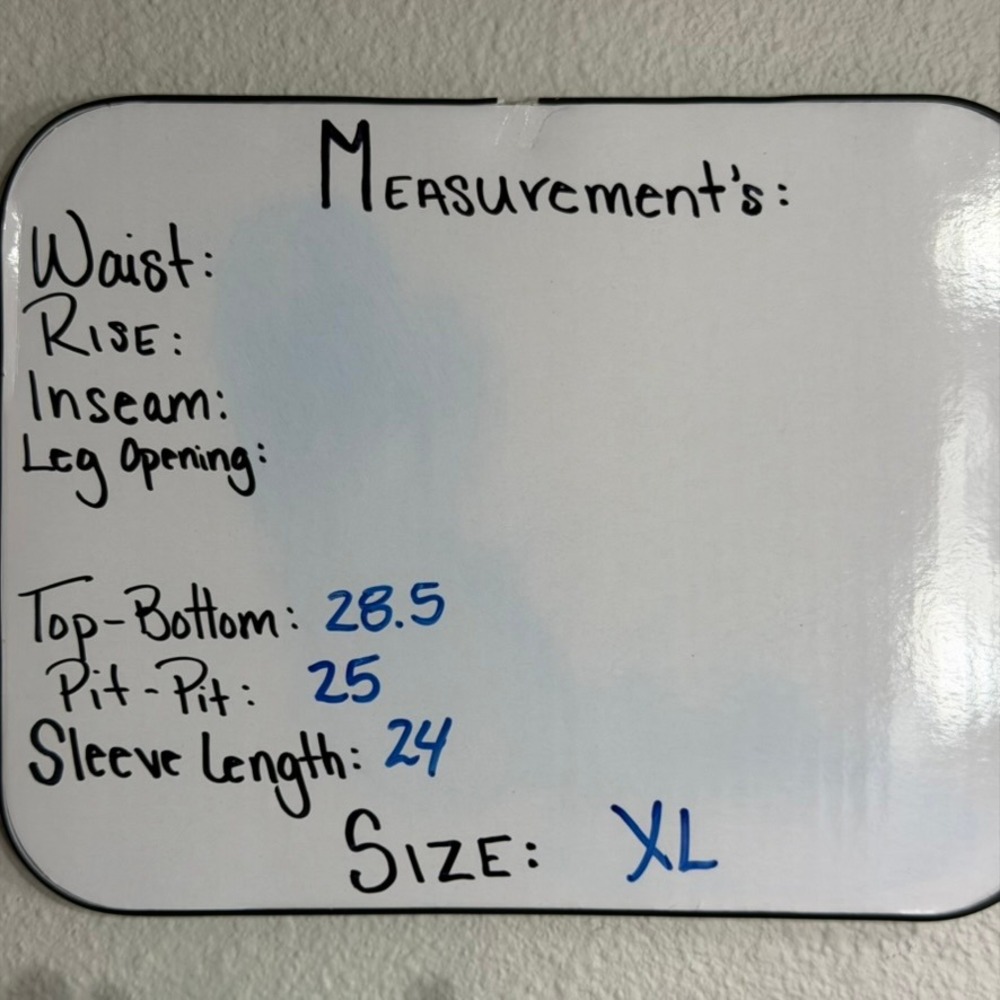 Measurement's:
Waist:
Rise:
Inseam:
Leg Opening:
Top-Bottom: 28.5
Pit-Pit: 25
Sleeve Length: 24
Size: XL